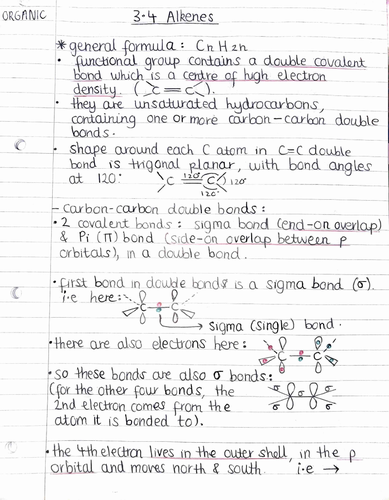 ORGANIC
3.4 Alkenes
* general formula: CnH2n
• functional group contains a double covalent
bond which is a centre of high electron
density. (>C=C<).
• they are unsaturated hydrocarbons,
containing one or more carbon-carbon double
bonds.
• shape around each C atom in C=C double
bond is trigonal planar, with bond angles
at 120°
C = C 120° 120° 120°
- Carbon-carbon double bonds:
• 2 covalent bonds: sigma bond (end-on overlap)
& Pi (π) bond (side-on overlap between p
orbitals), in a double bond.
• first bond in double bonds is a sigma bond (σ).
i.e here:
C C
→ sigma (single) bond.
• there are also electrons here:
C C
• so these bonds are also σ bonds:
(for the other four bonds, the
2nd electron comes from the
atom it is bonded to).
σ σ σ σ
• the 4th electron lives in the outer shell, in the p
orbital and moves north & south. i.e →